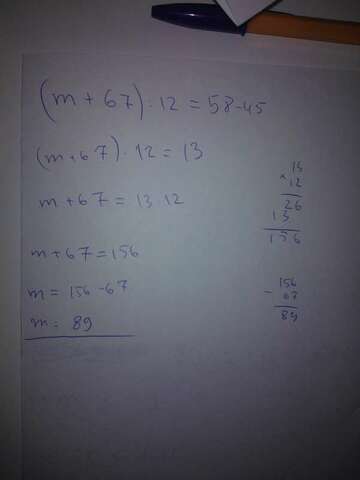 (m + 67) : 12 = 58 - 45
(m + 67) : 12 = 13
m + 67 = 13 · 12
m + 67 = 156
m = 156 - 67
m = 89
13
× 12
26
13
156
156
- 67
89